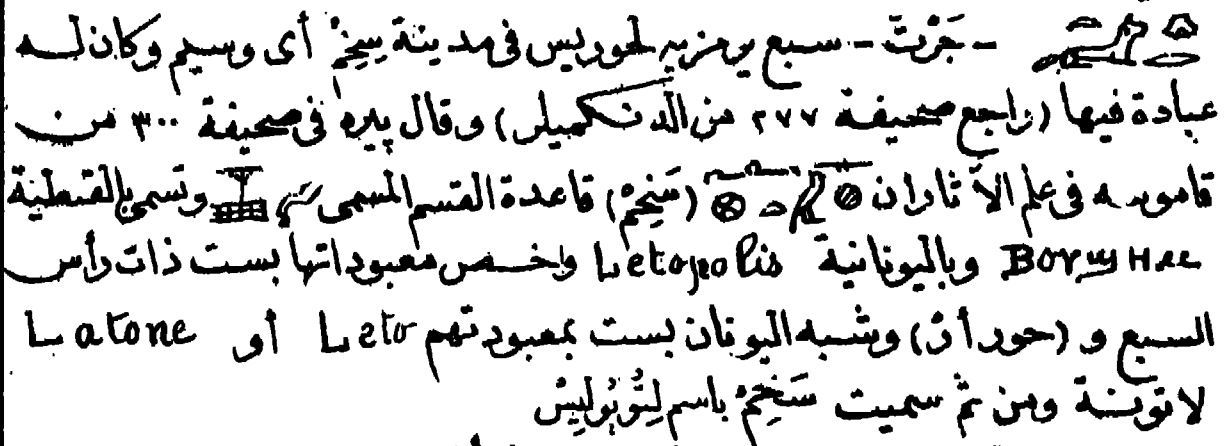 - جَرْتَ - سبع يرمز به لحوريس فى مدينة سِخِمْ أى وسيم وكان له
عبادة فيها (راجع صحيفة ٢٧٧ من الدنكميلر) وقال بيره فى صحيفة ٣٠٠ من
قاموسه فى علم الآثار ان (سَخِمْ) قاعدة القسم المسمى وتسمى بالقبطية
وباليونانية Letopolis واخص معبوداتها بست ذات رأس
السبع و (حور أرْ) وشبه اليونان بست بمعبودتهم Leto أو Latone
لاتونة ومن ثم سميت سَخِمْ باسم لِتُوبُولِيسْ